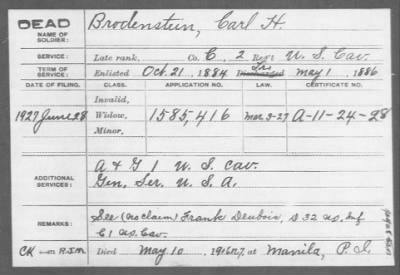 DEAD
NAME OF SOLDIER: Brodenstein, Carl H.
SERVICE: Late rank, Co. C, 2 Reg't U. S. Cav.
TERM OF SERVICE: Enlisted Oct. 21, 1884 Discharged May 1, 1886
DATE OF FILING. CLASS. APPLICATION NO. LAW. CERTIFICATE NO.
Invalid,
1927 June 28 Widow, 1585,416 Mar 3-27 A-11-24-28
Minor,
ADDITIONAL SERVICES: A & G 1 U. S. Cav.
Gen. Ser. U. S. A.
REMARKS: See (no claim) Frank Deubois, D 32 Inf
C 1 Cav.
CK RJM Died May 10, 1916 at Manila, P. I.